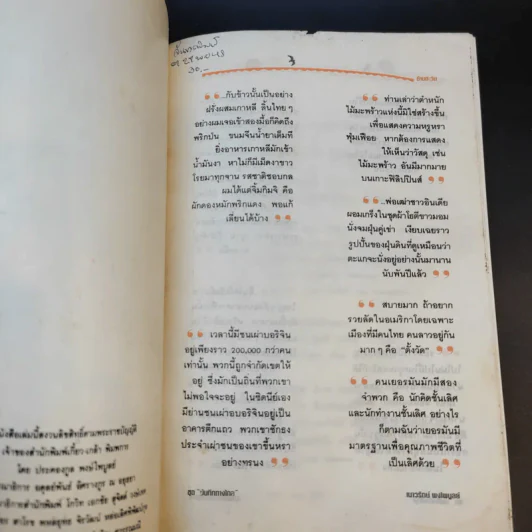 3
๓๐.-
...กับข้าวนั้นเป็นอย่าง
ฝรั่งผสมเกาหลี ลิ้นไทยๆ
อย่างผมเจอเข้าสองมื้อก็คิดถึง
พริกป่น ขนมจีนน้ำยาเต็มที
ยิ่งอาหารเกาหลีมักเข้า
น้ำมันงา หาไม่ก็มีเม็ดงาขาว
โรยมาทุกจาน รสชาติชอบกล
ผมได้แต่จิ้มกิมจิ คือ
ผักดองหมักพริกแดง พอแก้
เลี่ยนได้บ้าง
เวลานี้มีชนเผ่าอบริจิน
อยู่เพียงราว 200,000 กว่าคน
เท่านั้น พวกนี้ถูกจำกัดเขตให้
อยู่ ซึ่งมักเป็นถิ่นที่พวกเขา
ไม่พอใจจะอยู่ ในซิดนีย์เอง
มีย่านชนเผ่าอบอริจินอยู่เป็น
อาคารตึกแถว พวกเขาชักธง
ประจำเผ่าชนของเขาขึ้นหรา
อย่างทรนง
ชุด "บันทึกทางไกล"
ท่านเล่าว่าตำหนัก
ไม้มะพร้าวแห่งนี้มิใช่สร้างขึ้น
เพื่อแสดงความหรูหรา
ฟุ่มเฟือย หากต้องการแสดง
ให้เห็นว่าวัสดุ เช่น
ไม้มะพร้าว อันมีมากมาย
บนเกาะฟิลิปปินส์
...พ่อเฒ่าชาวอินเดีย
ผอมเกร็งในชุดผ้าโธตีขาวมอม
นั่งจมฝุ่นคู่เข่า เงียบเฉยราว
รูปปั้นของฝุ่นดินที่ดูเหมือนว่า
ตะแกจะนั่งอยู่อย่างนั้นมานาน
นับพันปีแล้ว
สบายมาก ถ้าอยาก
รวยลัดในอเมริกาโดยเฉพาะ
เมืองที่มีคนไทย คนลาวอยู่กัน
มากๆ คือ "ตั้งวัด"
คนเยอรมันมักมีสอง
จำพวก คือ นักคิดชั้นเลิศ
และนักทำงานชั้นเลิศ อย่างไร
ก็ตามฉันว่าเยอรมันมี
มาตรฐานเพื่อคุณภาพชีวิตที่
เป็นเลิศด้วย
เนาวรัตน์ พงษ์ไพบูลย์
เจ้าของสำนักพิมพ์เกี้ยวเกล้า พิมพการ
โดย ประคองกูล พงษ์ไพบูลย์